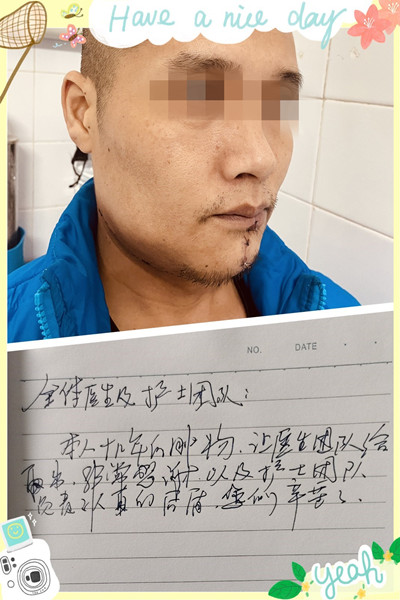 Have a nice day
NO. DATE
全体医生及护士团队:
本人十几年的肿物.让医生团队给
取出.非常感谢.以及护士团队
认真的 您们辛苦了.
yeah